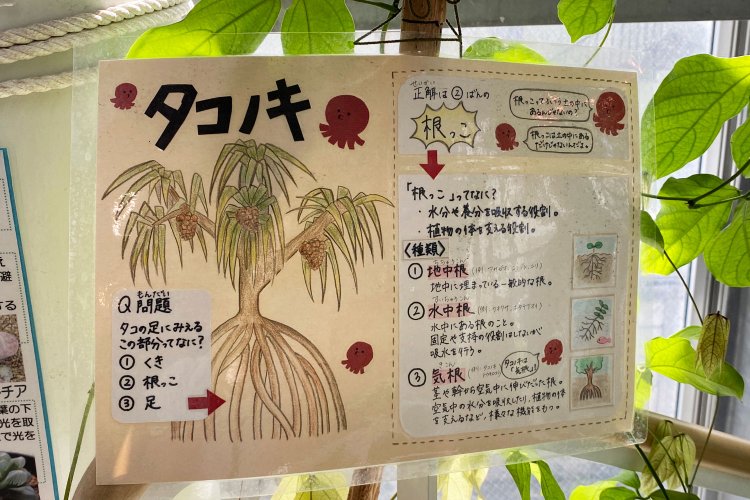 タコノキ
もんだい
Q 問題
タコの足にみえる
この部分ってなに?
① くき
② 根っこ
③ 足
せいかい
正解は②ばんの
根っこ
根っこってふつう土の中に
あるんじゃないの?
根っこは土の中にある
だけじゃないんだよ。
「根っこ」ってなに?
・水分や養分を吸収する役割。
・植物の体を支える役割。
〈種類〉
① 地中根
地中に埋まっている一般的な根。
② 水中根
水中にある根のこと。
固定や支持の役割はしないが
吸水を行う。
③ 気根
タコノキは
「気根」!
茎や幹から空気中に伸びだった根。
空気中の水分を吸収したり、植物の体
を支えるなど、様々な機能をもつ。
避
する
チア
葉の下
光を取
で光を